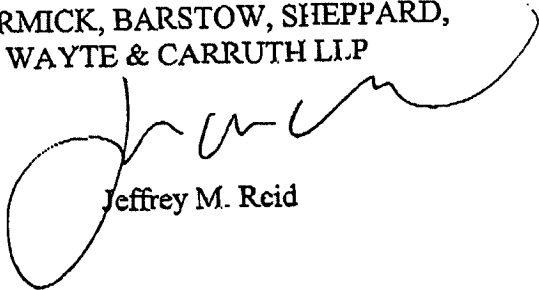 RMICK, BARSTOW, SHEPPARD,
WAYTE & CARRUTH LLP
Jeffrey M. Reid